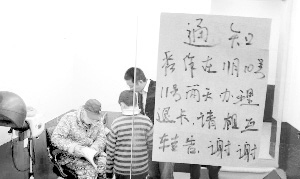 通知
我作在11月10号
11号两天办理
退卡,请相互
转告,谢谢